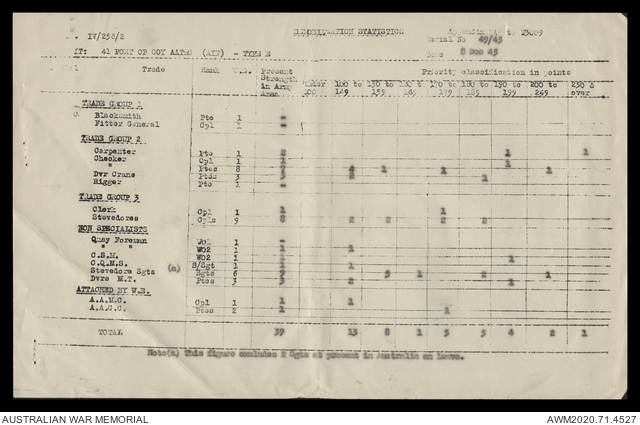 IV/25d/2 DEMOBILISATION STATISTICS Appendix to
Serial No 49/45
41 PORT OP COY AATNC (AIF) - TYPE E Date 8 Dec 45
Trade Rank W.E. Present Strength in Army Area Priority classification in points
Under 100 100 to 149 150 to 159 170 to 179 180 to 189 190 to 199 200 to 249 250 & over
TRADE GROUP 1
Blacksmith Pte 1 -
Fitter General Cpl 1 -
TRADE GROUP 2
Carpenter Pte 1 2 1 1
Checker Cpl 1 1 1
" Ptes 8 7 4 1 1 1
Dvr Crane Ptes 3 3 2 1
Rigger Pte 1 -
TRADE GROUP 3
Clerk Cpl 1 1 1
Stevedores Cpls 9 8 2 2 2 2
NON SPECIALISTS
Quay Foreman WO1 1 -
" " WO2 1 1 1
C.S.M. WO2 1 1 1
C.Q.M.S. S/Sgt 1 1 1
Stevedore Sgts (a) Sgts 6 9 5 1 2 1
Dvrs M.T. Ptes 3 3 2 1
ATTACHED BY W.E.
A.A.M.C. Cpl 1 1 1
A.A.C.C. Ptes 2 1 1
TOTAL 39 13 8 1 5 5 4 2 1
Note(a) This figure excludes 2 Sgts at present in Australia on leave.
AUSTRALIAN WAR MEMORIAL AWM2020.71.4527